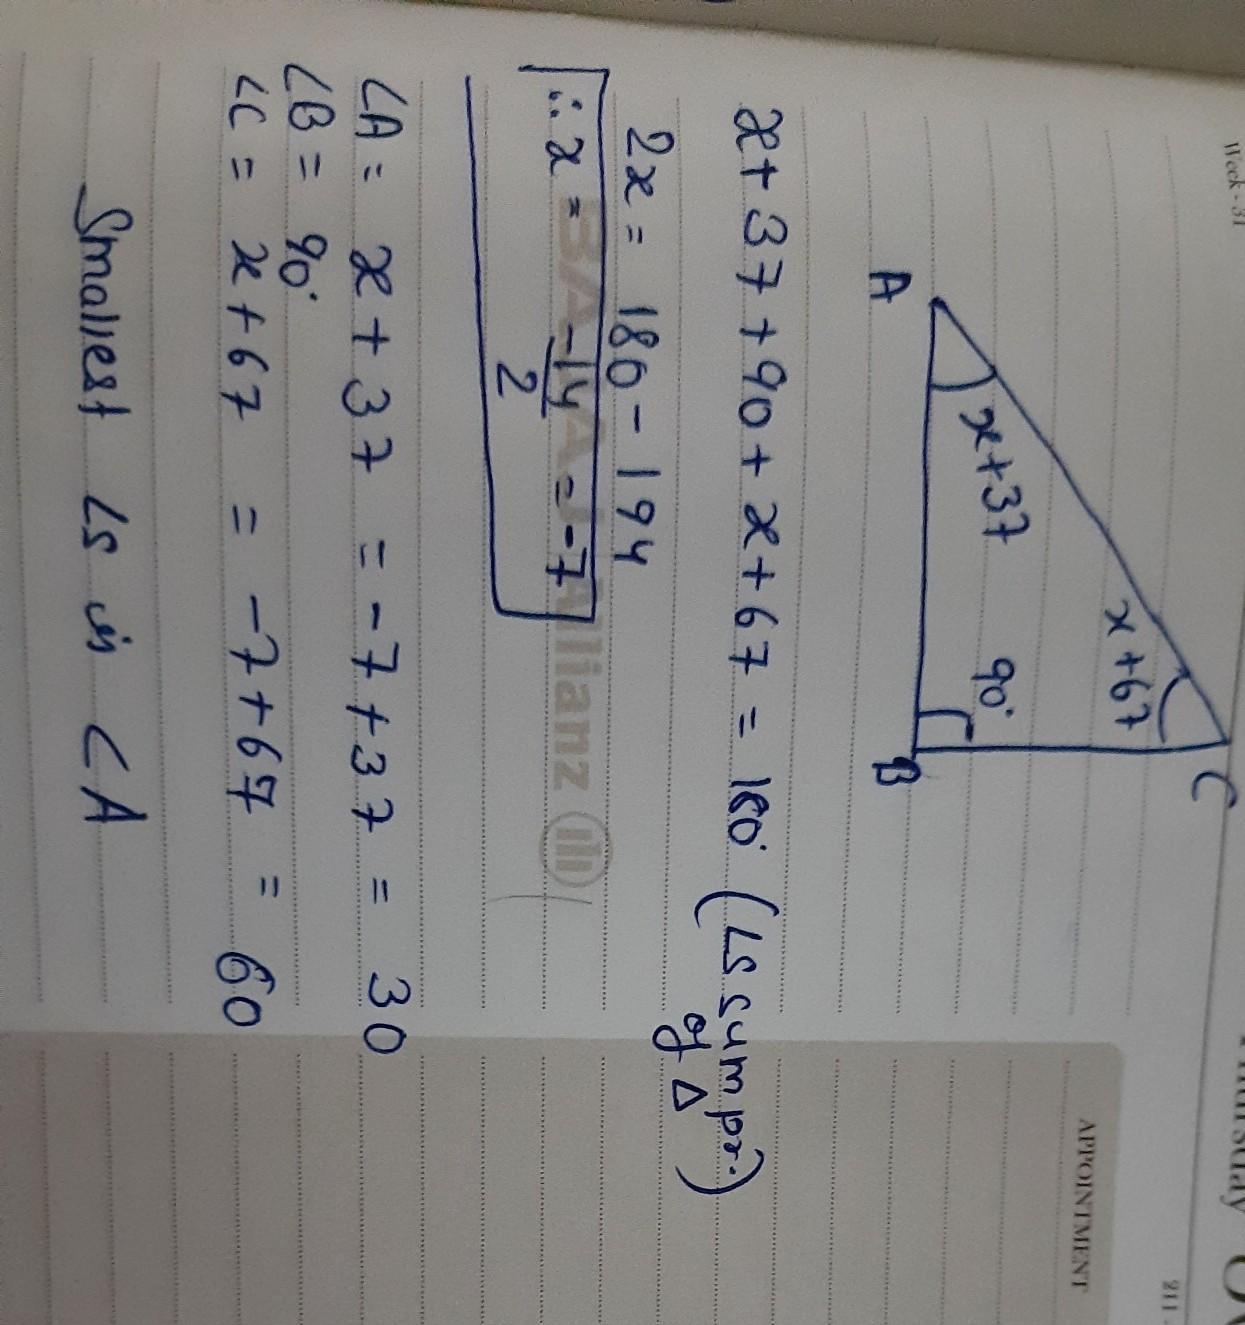 Week - 31
211
APPOINTMENT
C
x+67
x+37
90°
A
B
x+37+90+x+67 = 180° (∠s sum pr.
of Δ)
2x = 180-194
∴ x = -14/2 = -7
BAJAJ Allianz
∠A = x+37 = -7+37 = 30
∠B = 90°
∠C = x+67 = -7+67 = 60
Smallest ∠s is ∠A